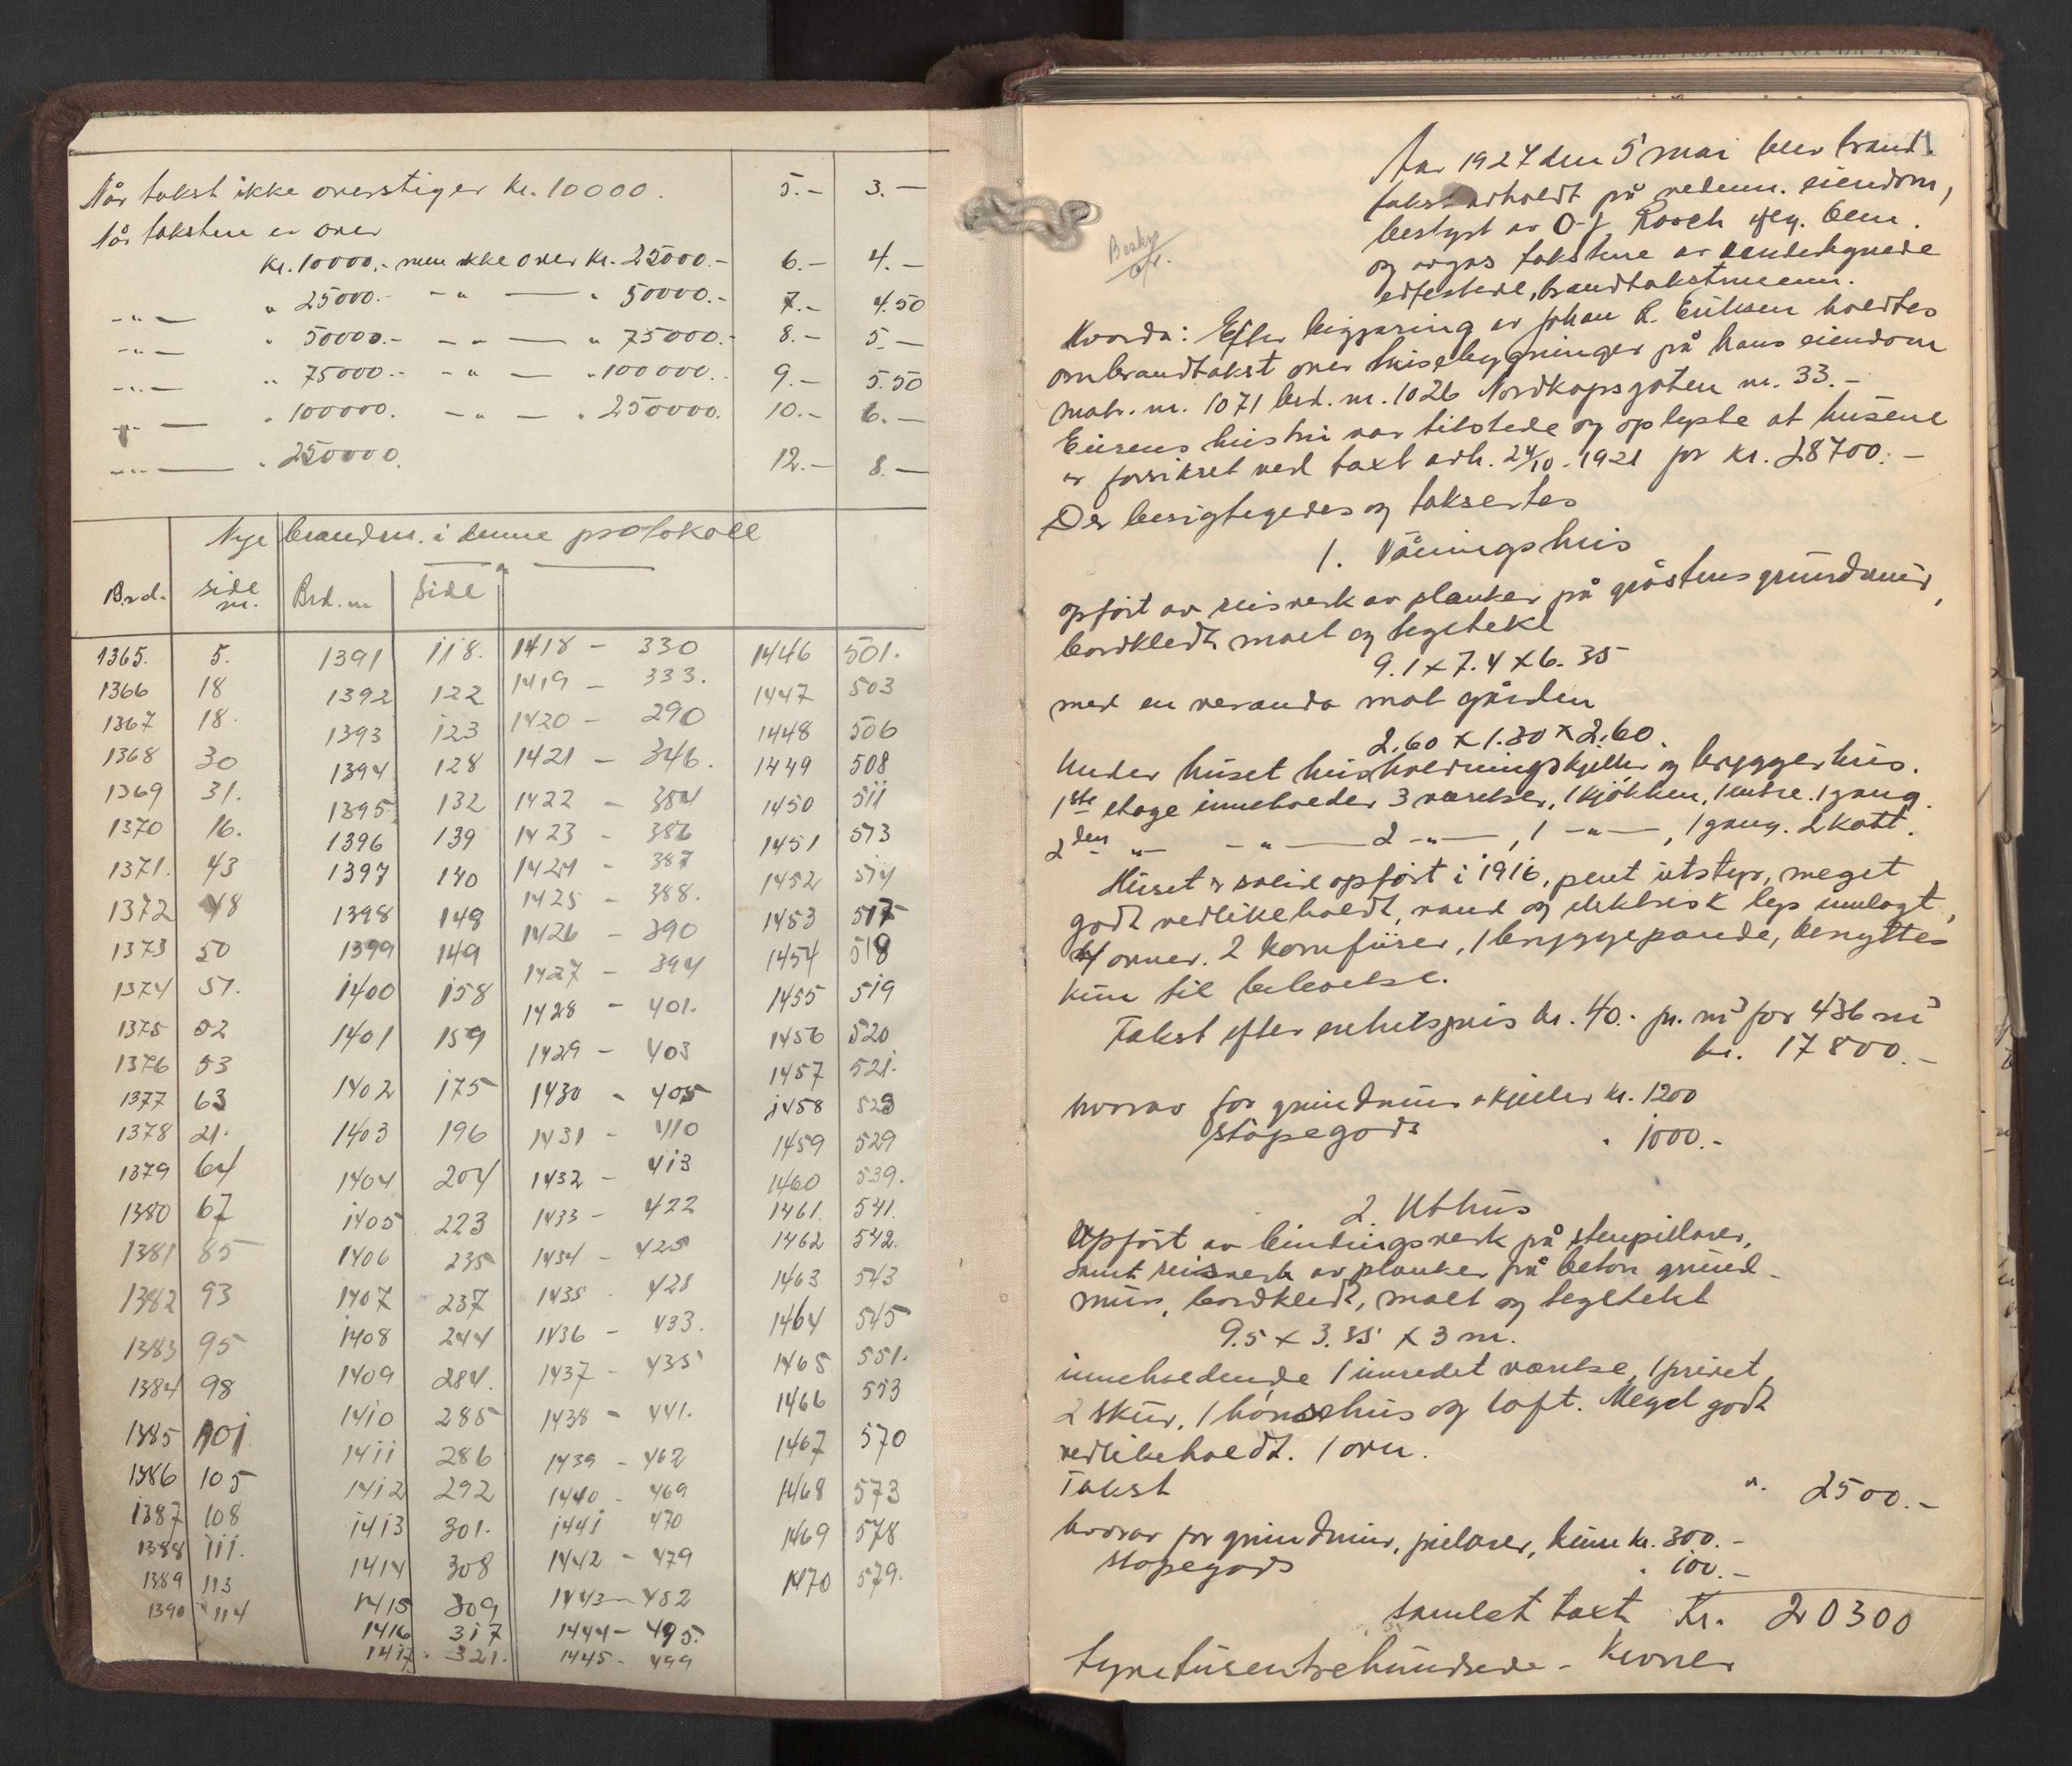 Når takst ikke overstiger kr. 10000. 5.- 3.-
Når taksten er over
kr. 10000.- men ikke over kr. 25000.- 6.- 4.-
-"- " 25000.- -"- " 50000.- 7.- 4.50
-"- " 50000.- -"- " 75000.- 8.- 5.-
-"- " 75000.- -"- " 100000.- 9.- 5.50
-"- " 100000. -"- " 250000. 10.- 6.-
-"- " 250000. 12.- 8.-
Nye brandnr. i denne protokoll
Brd. side nr. Brd. nr side
1365. 5. 1391 118. 1418 - 330 1446 501.
1366 18 1392 122 1419 - 333. 1447 503
1367 18. 1393 123 1420 - 290 1448 506
1368 30 1394 128 1421 - 346. 1449 508
1369 31. 1395 132 1422 - 384 1450 511
1370 16. 1396 139 1423 - 386 1451 513
1371. 43 1397 140 1424 - 387 1452 514
1372 48 1398 148 1425 - 388. 1453 517
1373 50 1399 149 1426 - 390 1454 518
1374 51. 1400 158 1427 - 394 1455 519
1375 52 1401 159 1428 - 401. 1456 520
1376 53 1402 175 1429 - 403 1457 521.
1377 63 1403 196 1430 - 405 1458 523
1378 21. 1404 204 1431 - 410 1459 529
1379 64 1405 223 1432 - 413 1460 539.
1380 67 1406 235 1433 - 422 1461. 541.
1381 85 1407 237 1434 - 425 1462 542.
1382 93 1408 244 1435 - 428 1463 543
1383 95 1409 284. 1436 - 433. 1464 545
1384 98 1410 285 1437 - 435 1465 551.
1385 101 1411 286 1438 - 441. 1466 553
1386 105 1412 292 1439 - 462 1467 570
1387 108 1413 301. 1440 - 469 1468 573
1388 111. 1414 308 1441 470 1469 578
1389 113 1415 309 1442 - 479 1470 579.
1390 114 1416 317 1443 - 482
1417. 321. 1444 - 495.
1445 - 499
1
Aar 1927 den 5 mai blev brand
takst avholdt på nedenn. eiendom,
bestyrt av O. J.
og avgas takstene av undertegnede
edfestede, brandtakstmenn.
Beskr.
Hvorda: Efter begjæring av Johan L. Eriksen holdtes
ombrandtakst over husebygninger på hans eiendom
matr. nr. 1071 brd. nr. 1026 Nordkapsgaten nr. 33.-
hustru var tilstede og oplyste at husene
er forsikret ved taxt avh. 24/10-1921 for kr. 28700.-
Der besigtegedes og taksertes
1. Våningshus
opført av reisverk av planker på gråstens grundmur,
bordkledt malt og teglteket
9.1 x 7.4 x 6.35
med en veranda mot gården
2.60 x 1.30 x 2.60.
Under huset husholdningskjeller og bryggerhus.
1ste etage inneholder 3 værelser, 1 kjøkken, 1 entre. 1 gang.
2den -"- -"- 2 -"-, 1 -"-, 1 gang. 2 kott.
Huset er solid opført i 1916, pent utstyr, meget
godt vedlikeholdt, vand og elektrisk lys innlagt,
4 ovner. 2 komfürer, 1 bryggepande, benyttes
kun til beboelse.
Takst efter enhetspris kr. 40.- pr. m³ for 436 m³
kr. 17800.-
hvorav for grundmur & kjeller kr. 1200
støpegods " 1000.-
2. Uthus
Opført av bindingsverk på stenpillarer,
samt reisverk av planker på beton grund-
mur, bordkledt, malt og teglteket
9.5 x 3.35 x 3 m.
inneholdende 1 innredet værelse, 1 privet,
2 skur, 1 hønsehus og loft. Meget godt
vedlikeholdt. 1 ovn.
Takst ". 2500.-
hvorav for grundmur, pielarer, kr. 300.-
støpegods " 100.-
samlet taxt Kr. 20300
tyvetusentrehundrede - kroner